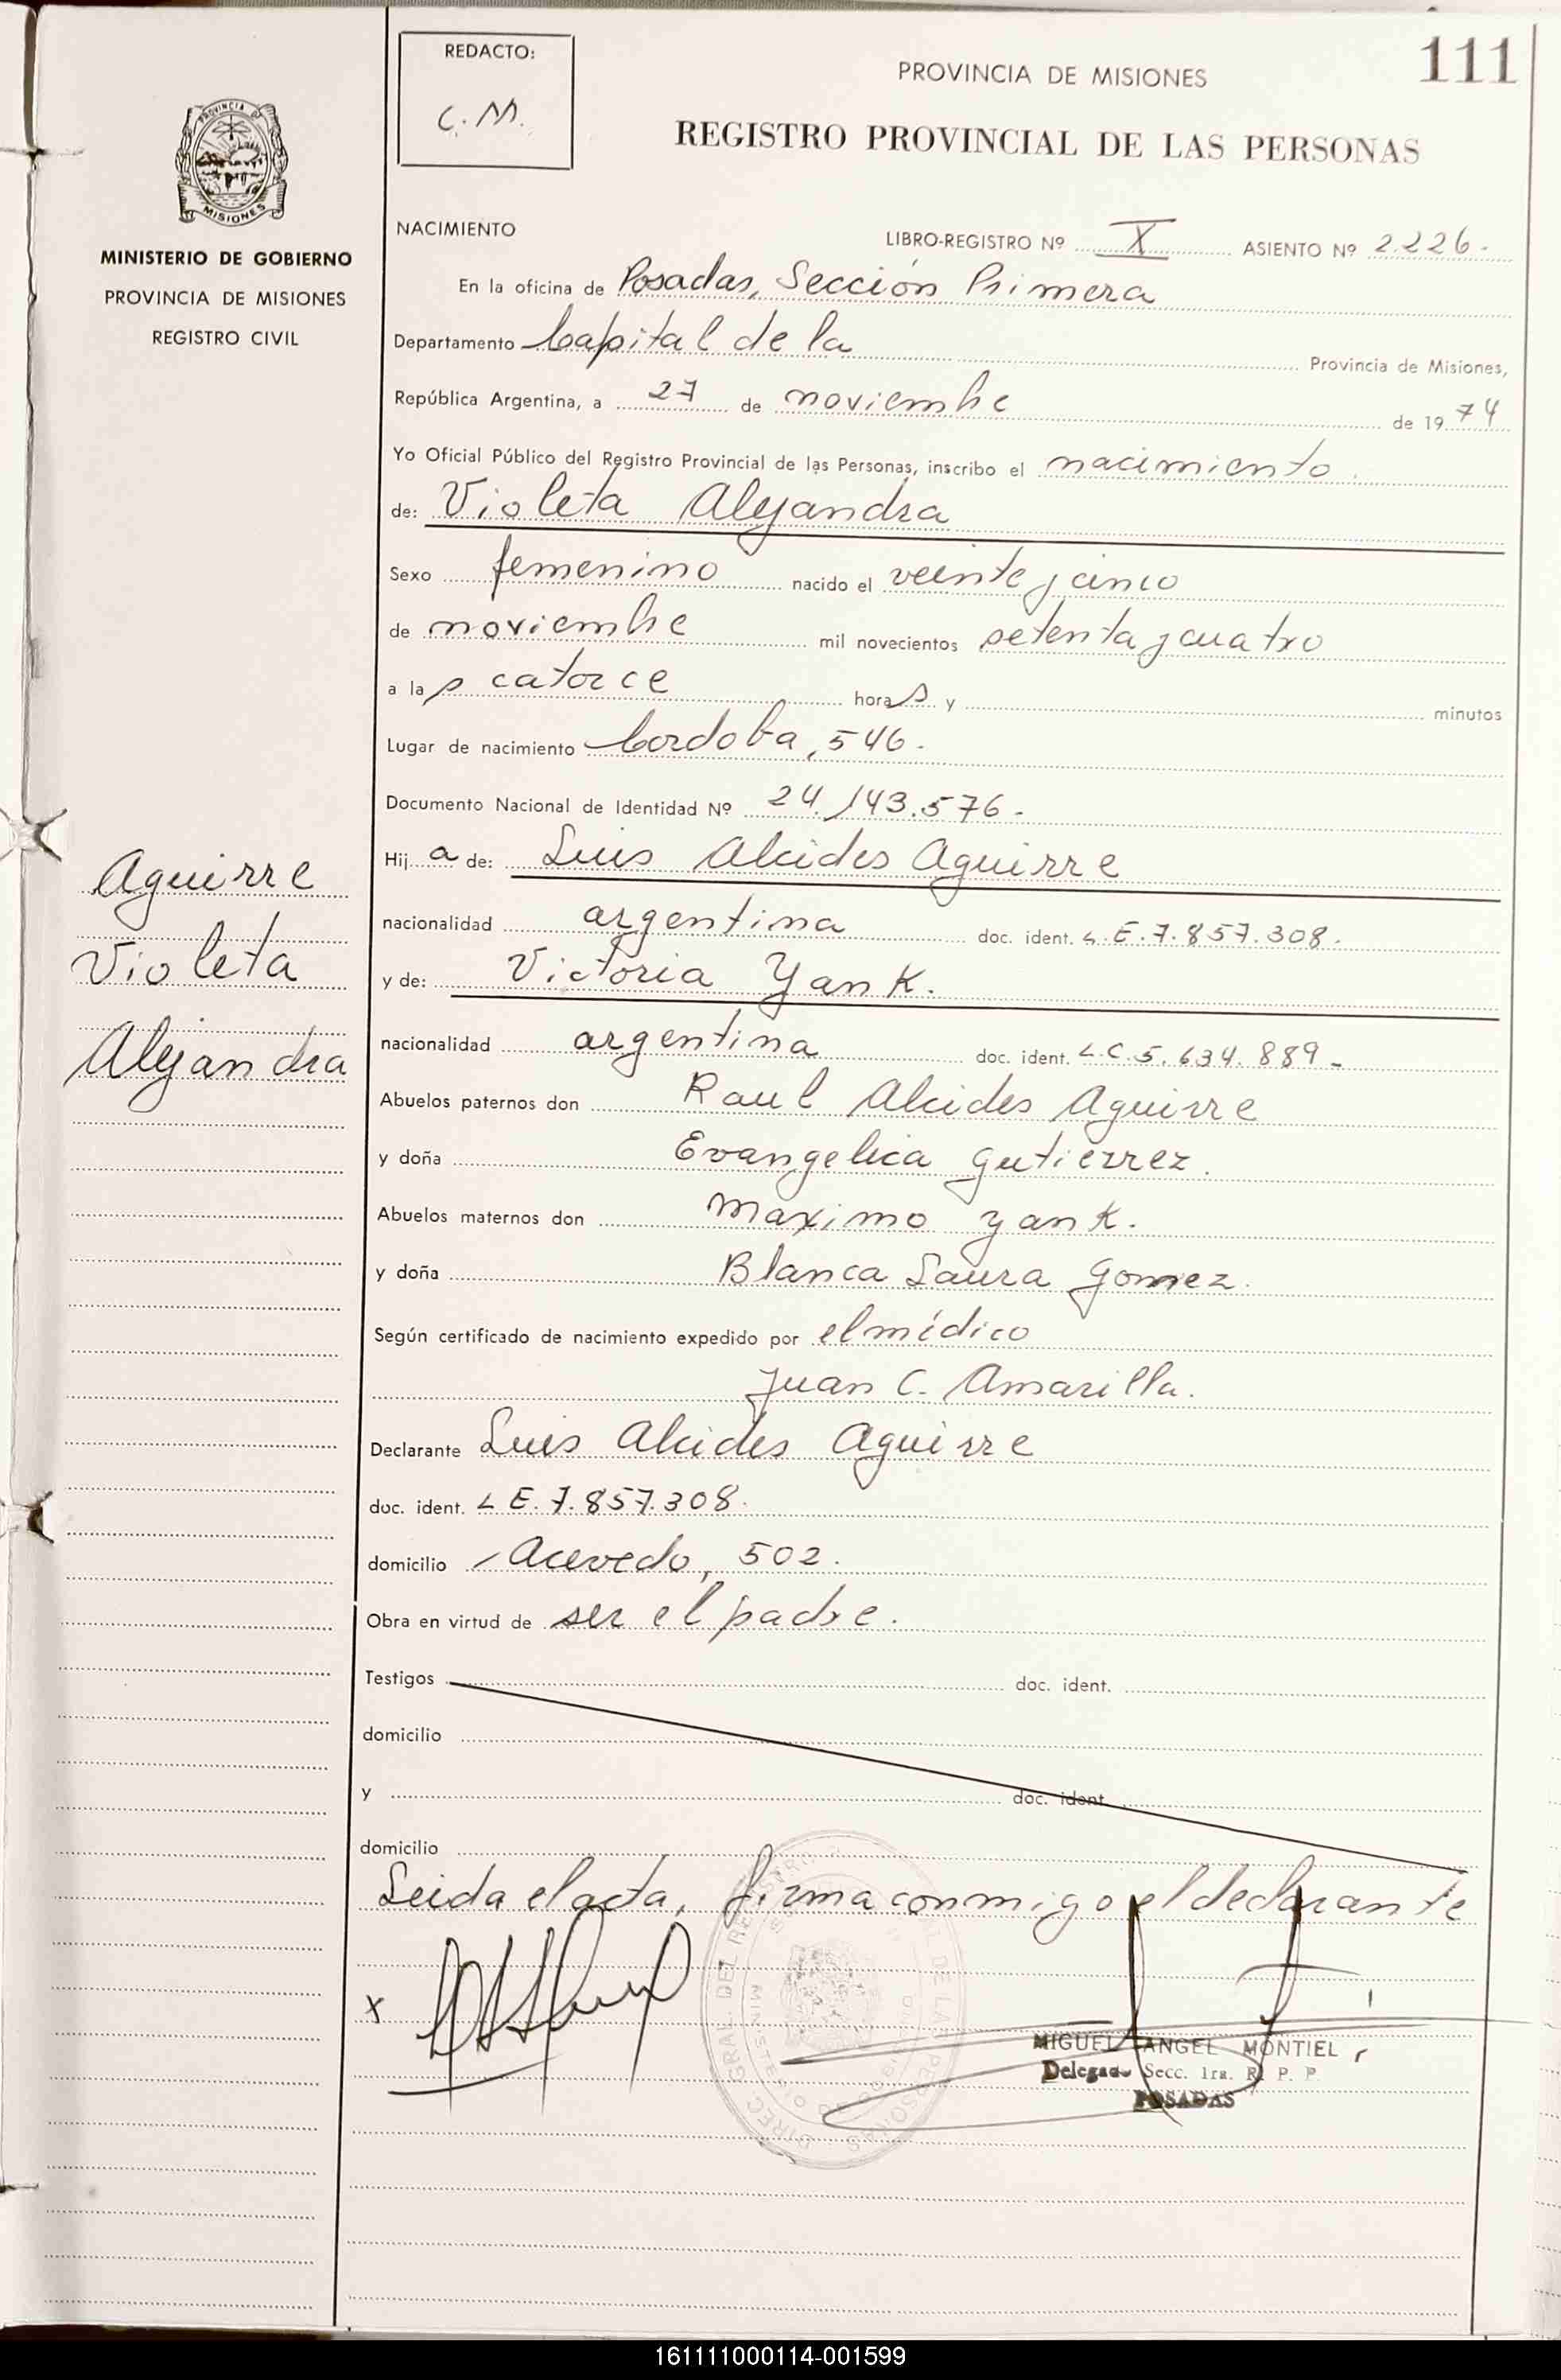 REDACTO:
C. M.
PROVINCIA DE MISIONES
111
REGISTRO PROVINCIAL DE LAS PERSONAS
PROVINCIA DE
MISIONES
MINISTERIO DE GOBIERNO
PROVINCIA DE MISIONES
REGISTRO CIVIL
NACIMIENTO
LIBRO-REGISTRO Nº X ASIENTO Nº 2.226.
En la oficina de Posadas, Sección Primera
Departamento Capital de la Provincia de Misiones,
República Argentina, a 27 de noviembre de 1974
Yo Oficial Público del Registro Provincial de las Personas, inscribo el nacimiento.
de: Violeta Alejandra
Sexo femenino nacido el veinte y cinco
de noviembre mil novecientos setenta y cuatro
a las catorce horas y minutos
Lugar de nacimiento Cordoba, 546.
Documento Nacional de Identidad Nº 24.143.576.
Hija de: Luis Alcides Aguirre
nacionalidad argentina doc. ident. L.E. 7.857.308.
y de: Victoria Yank.
nacionalidad argentina doc. ident. L.C. 5.634.889-
Abuelos paternos don Raul Alcides Aguirre
y doña Evangelica Gutierrez.
Abuelos maternos don Maximo Yank.
y doña Blanca Laura Gomez.
Según certificado de nacimiento expedido por el médico
Juan C. Amarilla.
Declarante Luis Alcides Aguirre
doc. ident. L E. 7.857.308.
domicilio Acevedo, 502.
Obra en virtud de ser el padre.
Testigos doc. ident.
domicilio
y doc. ident.
domicilio
Leida el acta, firma conmigo el declarante
x
MIGUEL ANGEL MONTIEL
Delegado Secc. 1ra. R. P. P.
POSADAS
Aguirre
Violeta
Alejandra
161111000114-001599